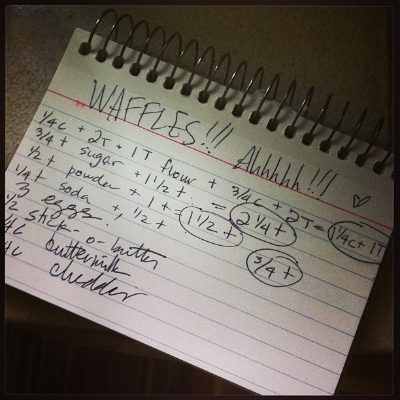 WAFFLES!!! Ahhhhh!!! ♡
1/4c + 2T + 1T flour + 3/4c + 2T = 1 1/4c + 1T
3/4 t sugar + 1 1/2 t. = 2 1/4 t
1/2 t powder + 1 t = 1 1/2 t
1/4 t soda +, 1/2 t 3/4 t
3 eggs.
1/2 stick-o-butter
buttermilk
chedder